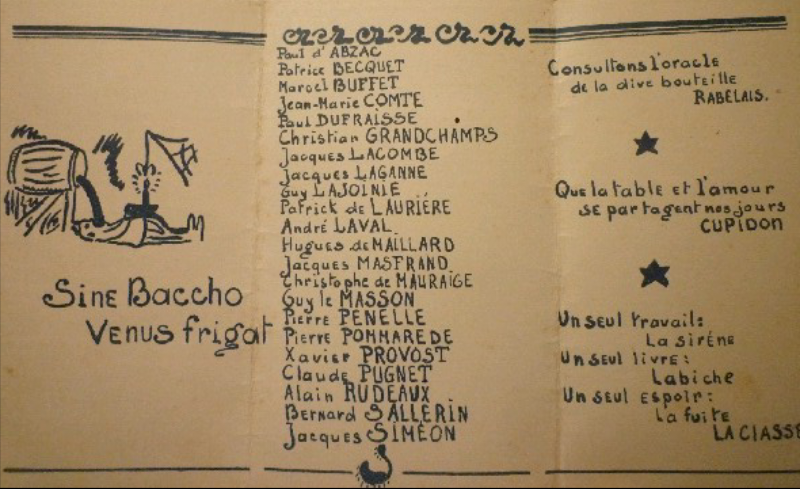 Sine Baccho
Venus frigat
Paul d'ABZAC
Patrice BECQUET
Marcel BUFFET
Jean-Marie COMTE
Paul DUFRAISSE
Christian GRANDCHAMPS
Jacques LACOMBE
Jacques LAGANNE
Guy LAJOINIE
Patrick de LAURIÈRE
André LAVAL
Hugues de MAILLARD
Jacques MASFRAND
Christophe de MAURAIGE
Guy le MASSON
Pierre PENELLE
Pierre POMMAREDE
Xavier PROVOST
Claude PUGNET
Alain RUDEAUX
Bernard SALLERIN
Jacques SIMÉON
Consultons l'oracle
de la dive bouteille
RABELAIS.
Que la table et l'amour
se partagent nos jours
CUPIDON
Un seul travail:
La sirène
Un seul livre:
Labiche
Un seul espoir:
La fuite
LA CLASSE